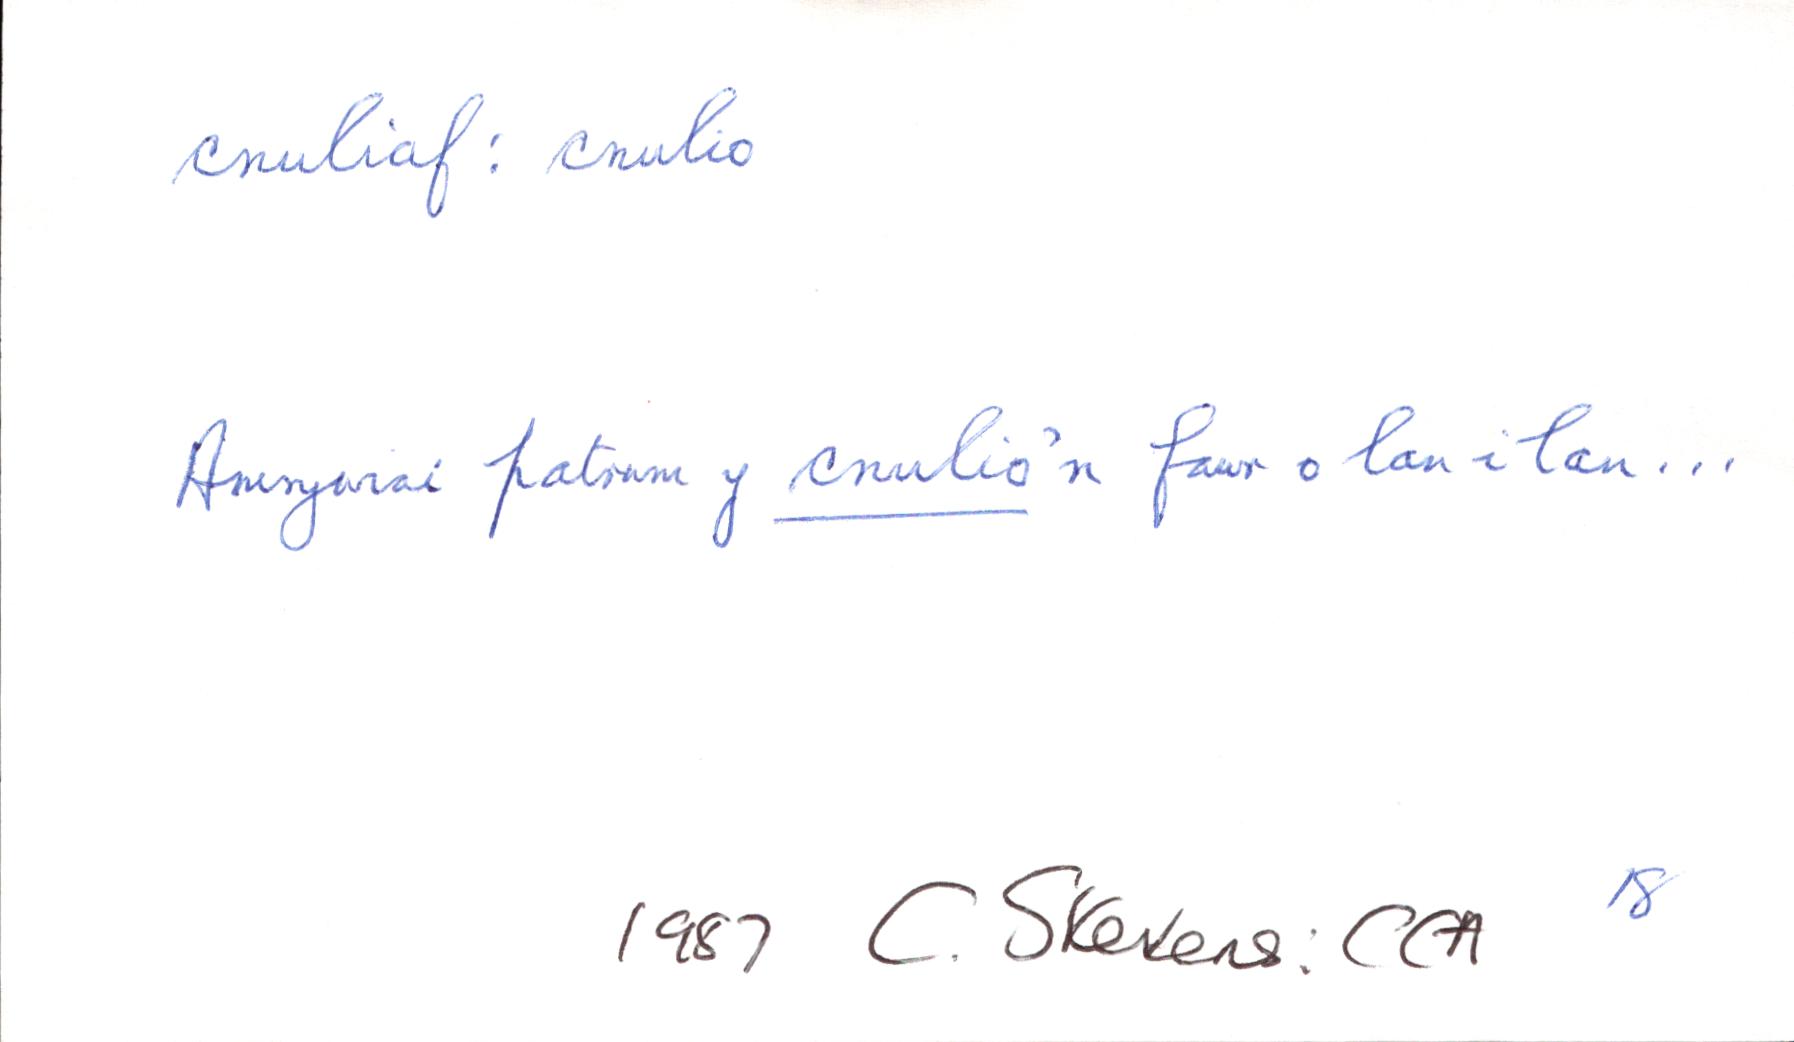 cnuliaf: cnulio
Amrywiai patrwm y cnulio'n fawr o lan i lan...
1987 C. Stevens: CCA 18